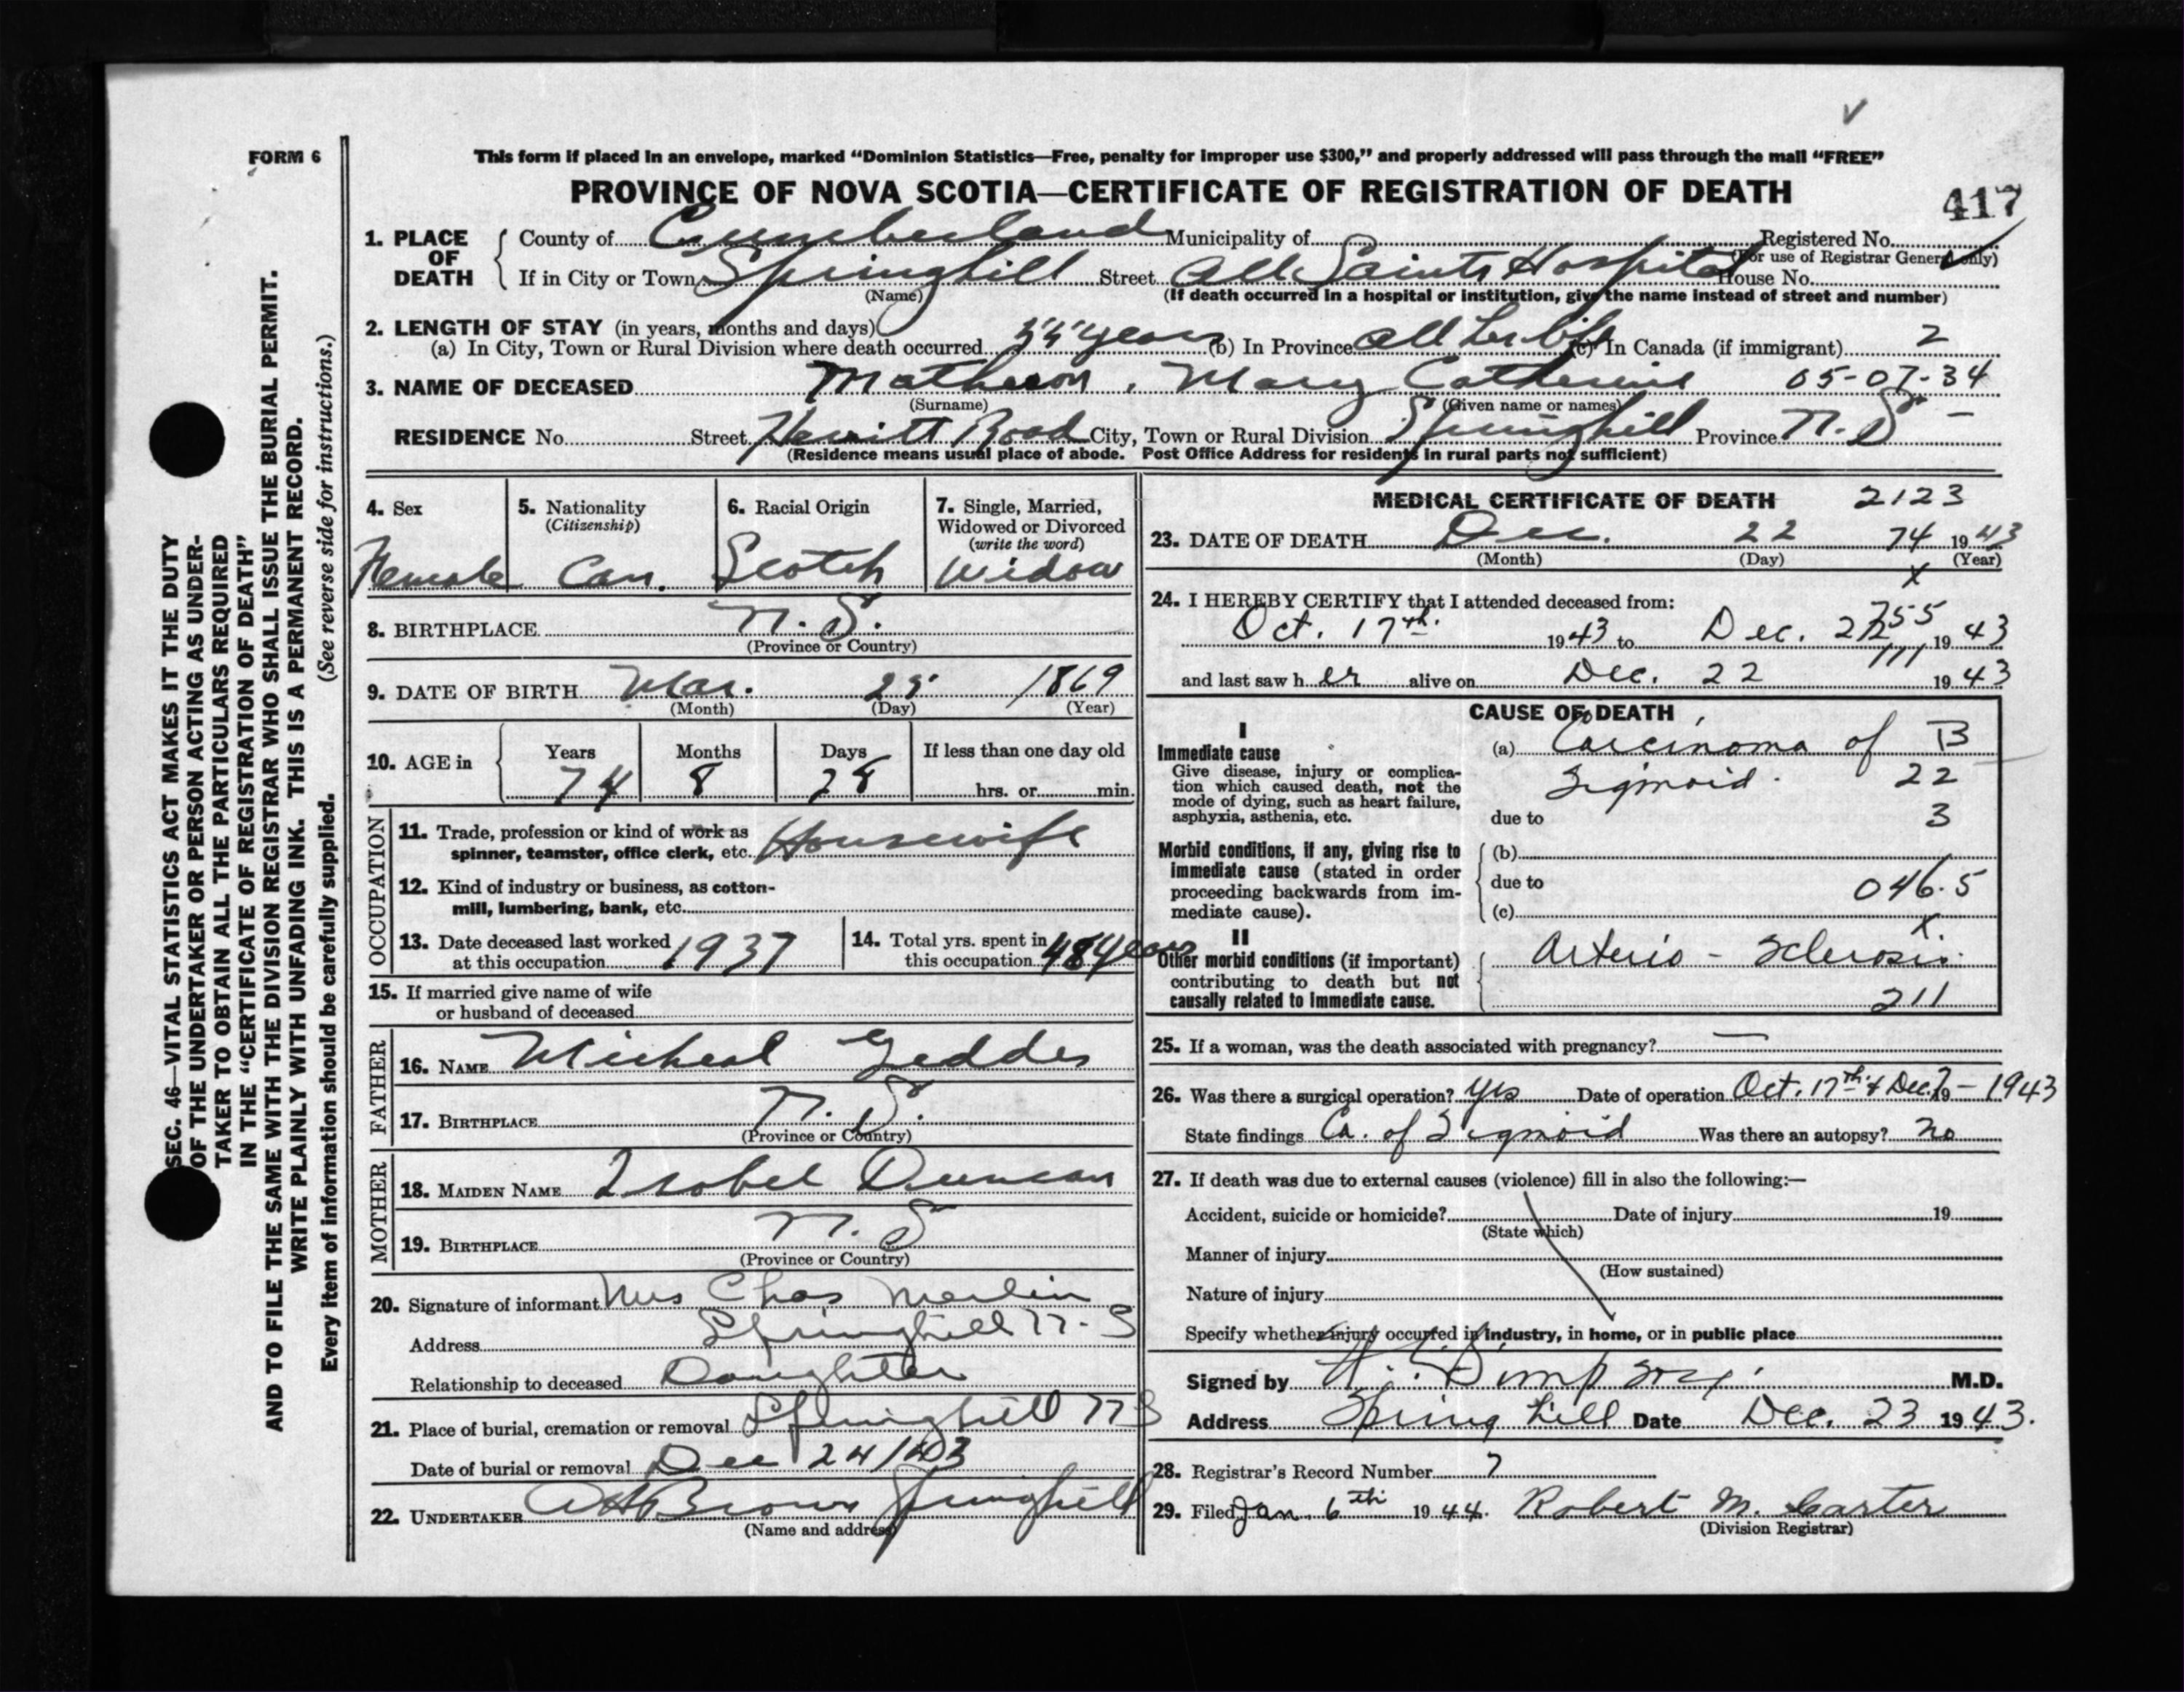 FORM 6
This form if placed in an envelope, marked “Dominion Statistics—Free, penalty for improper use $300,” and properly addressed will pass through the mail “FREE”
PROVINCE OF NOVA SCOTIA—CERTIFICATE OF REGISTRATION OF DEATH
417
1. PLACE OF DEATH
County of Cumberland Municipality of Registered No.
(For use of Registrar General only)
If in City or Town Springhill Street All Saints Hospital House No.
(Name) (If death occurred in a hospital or institution, give the name instead of street and number)
2. LENGTH OF STAY (in years, months and days)
(a) In City, Town or Rural Division where death occurred 55 years (b) In Province all her life (c) In Canada (if immigrant) 2
3. NAME OF DECEASED Matheson, Mary Catherine 05-07-34
(Surname) (Given name or names)
RESIDENCE No. Street Herritt Road City, Town or Rural Division Springhill Province N.S —
(Residence means usual place of abode. Post Office Address for residents in rural parts not sufficient)
4. Sex
Female
5. Nationality
(Citizenship)
Can.
6. Racial Origin
Scotch
7. Single, Married,
Widowed or Divorced
(write the word)
Widow
8. BIRTHPLACE N.S.
(Province or Country)
9. DATE OF BIRTH Mar. 25 1869
(Month) (Day) (Year)
10. AGE in
Years Months Days If less than one day old
74 8 28 hrs. or min.
OCCUPATION
11. Trade, profession or kind of work as
spinner, teamster, office clerk, etc. Housewife
12. Kind of industry or business, as cotton-
mill, lumbering, bank, etc.
13. Date deceased last worked
at this occupation 1937
14. Total yrs. spent in
this occupation 48 years
15. If married give name of wife
or husband of deceased
FATHER
16. NAME Micheal Geddes
17. BIRTHPLACE N.S.
(Province or Country)
MOTHER
18. MAIDEN NAME Isobel Duncan
19. BIRTHPLACE N.S
(Province or Country)
20. Signature of informant Mrs Chas Merlin
Address Springhill N.S
Relationship to deceased Daughter
21. Place of burial, cremation or removal Springhill NS
Date of burial or removal Dec 24/43
22. UNDERTAKER AH Brown Springhill
(Name and address)
MEDICAL CERTIFICATE OF DEATH 2123
23. DATE OF DEATH Dec. 22 74 1943
(Month) (Day) (Year)
x
24. I HEREBY CERTIFY that I attended deceased from:
755
Oct. 17th. 1943 to Dec. 22 1943
111
and last saw her alive on Dec. 22 1943
CAUSE OF DEATH
I
Immediate cause
Give disease, injury or complica-
tion which caused death, not the
mode of dying, such as heart failure,
asphyxia, asthenia, etc.
(a) Carcinoma of B
Sigmoid. 22
due to 3
Morbid conditions, if any, giving rise to
immediate cause (stated in order
proceeding backwards from im-
mediate cause).
(b)
due to 046.5
(c)
x
II
Other morbid conditions (if important)
contributing to death but not
causally related to immediate cause.
Arterio - Sclerosis.
211
25. If a woman, was the death associated with pregnancy? —
26. Was there a surgical operation? yes Date of operation Oct. 17th & Dec. 7 19 - 1943
State findings Ca. of Sigmoid Was there an autopsy? no
27. If death was due to external causes (violence) fill in also the following:—
Accident, suicide or homicide? Date of injury 19
(State which)
Manner of injury
(How sustained)
Nature of injury
Specify whether injury occurred in industry, in home, or in public place
Signed by Simpson M.D.
Address Springhill Date Dec. 23 1943.
28. Registrar's Record Number 7
29. Filed Jan. 6th 1944. Robert M. Carter
(Division Registrar)
SEC. 46—VITAL STATISTICS ACT MAKES IT THE DUTY
OF THE UNDERTAKER OR PERSON ACTING AS UNDER-
TAKER TO OBTAIN ALL THE PARTICULARS REQUIRED
IN THE “CERTIFICATE OF REGISTRATION OF DEATH”
AND TO FILE THE SAME WITH THE DIVISION REGISTRAR WHO SHALL ISSUE THE BURIAL PERMIT.
WRITE PLAINLY WITH UNFADING INK. THIS IS A PERMANENT RECORD.
Every item of information should be carefully supplied. (See reverse side for instructions.)